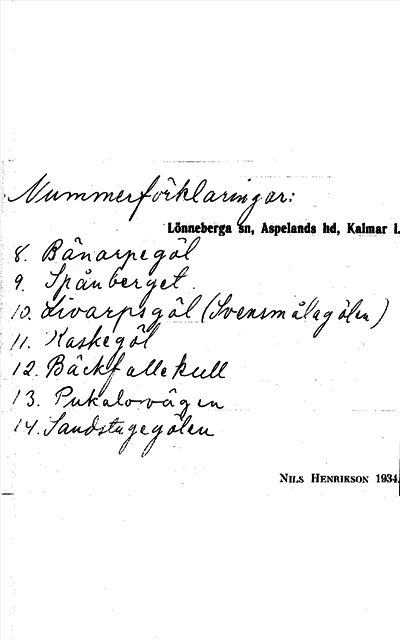 Nummerförklaringar:
Lönneberga sn, Aspelands hd, Kalmar l.
8. Bänarpegöl
9. Spånberget.
10. Livarpsgöl (Svensmålagölen)
11. Kaskegöl
12. Bäckfallekull
13. Pukalovägen
14. Sandstugegölen
NILS HENRIKSON 1934.